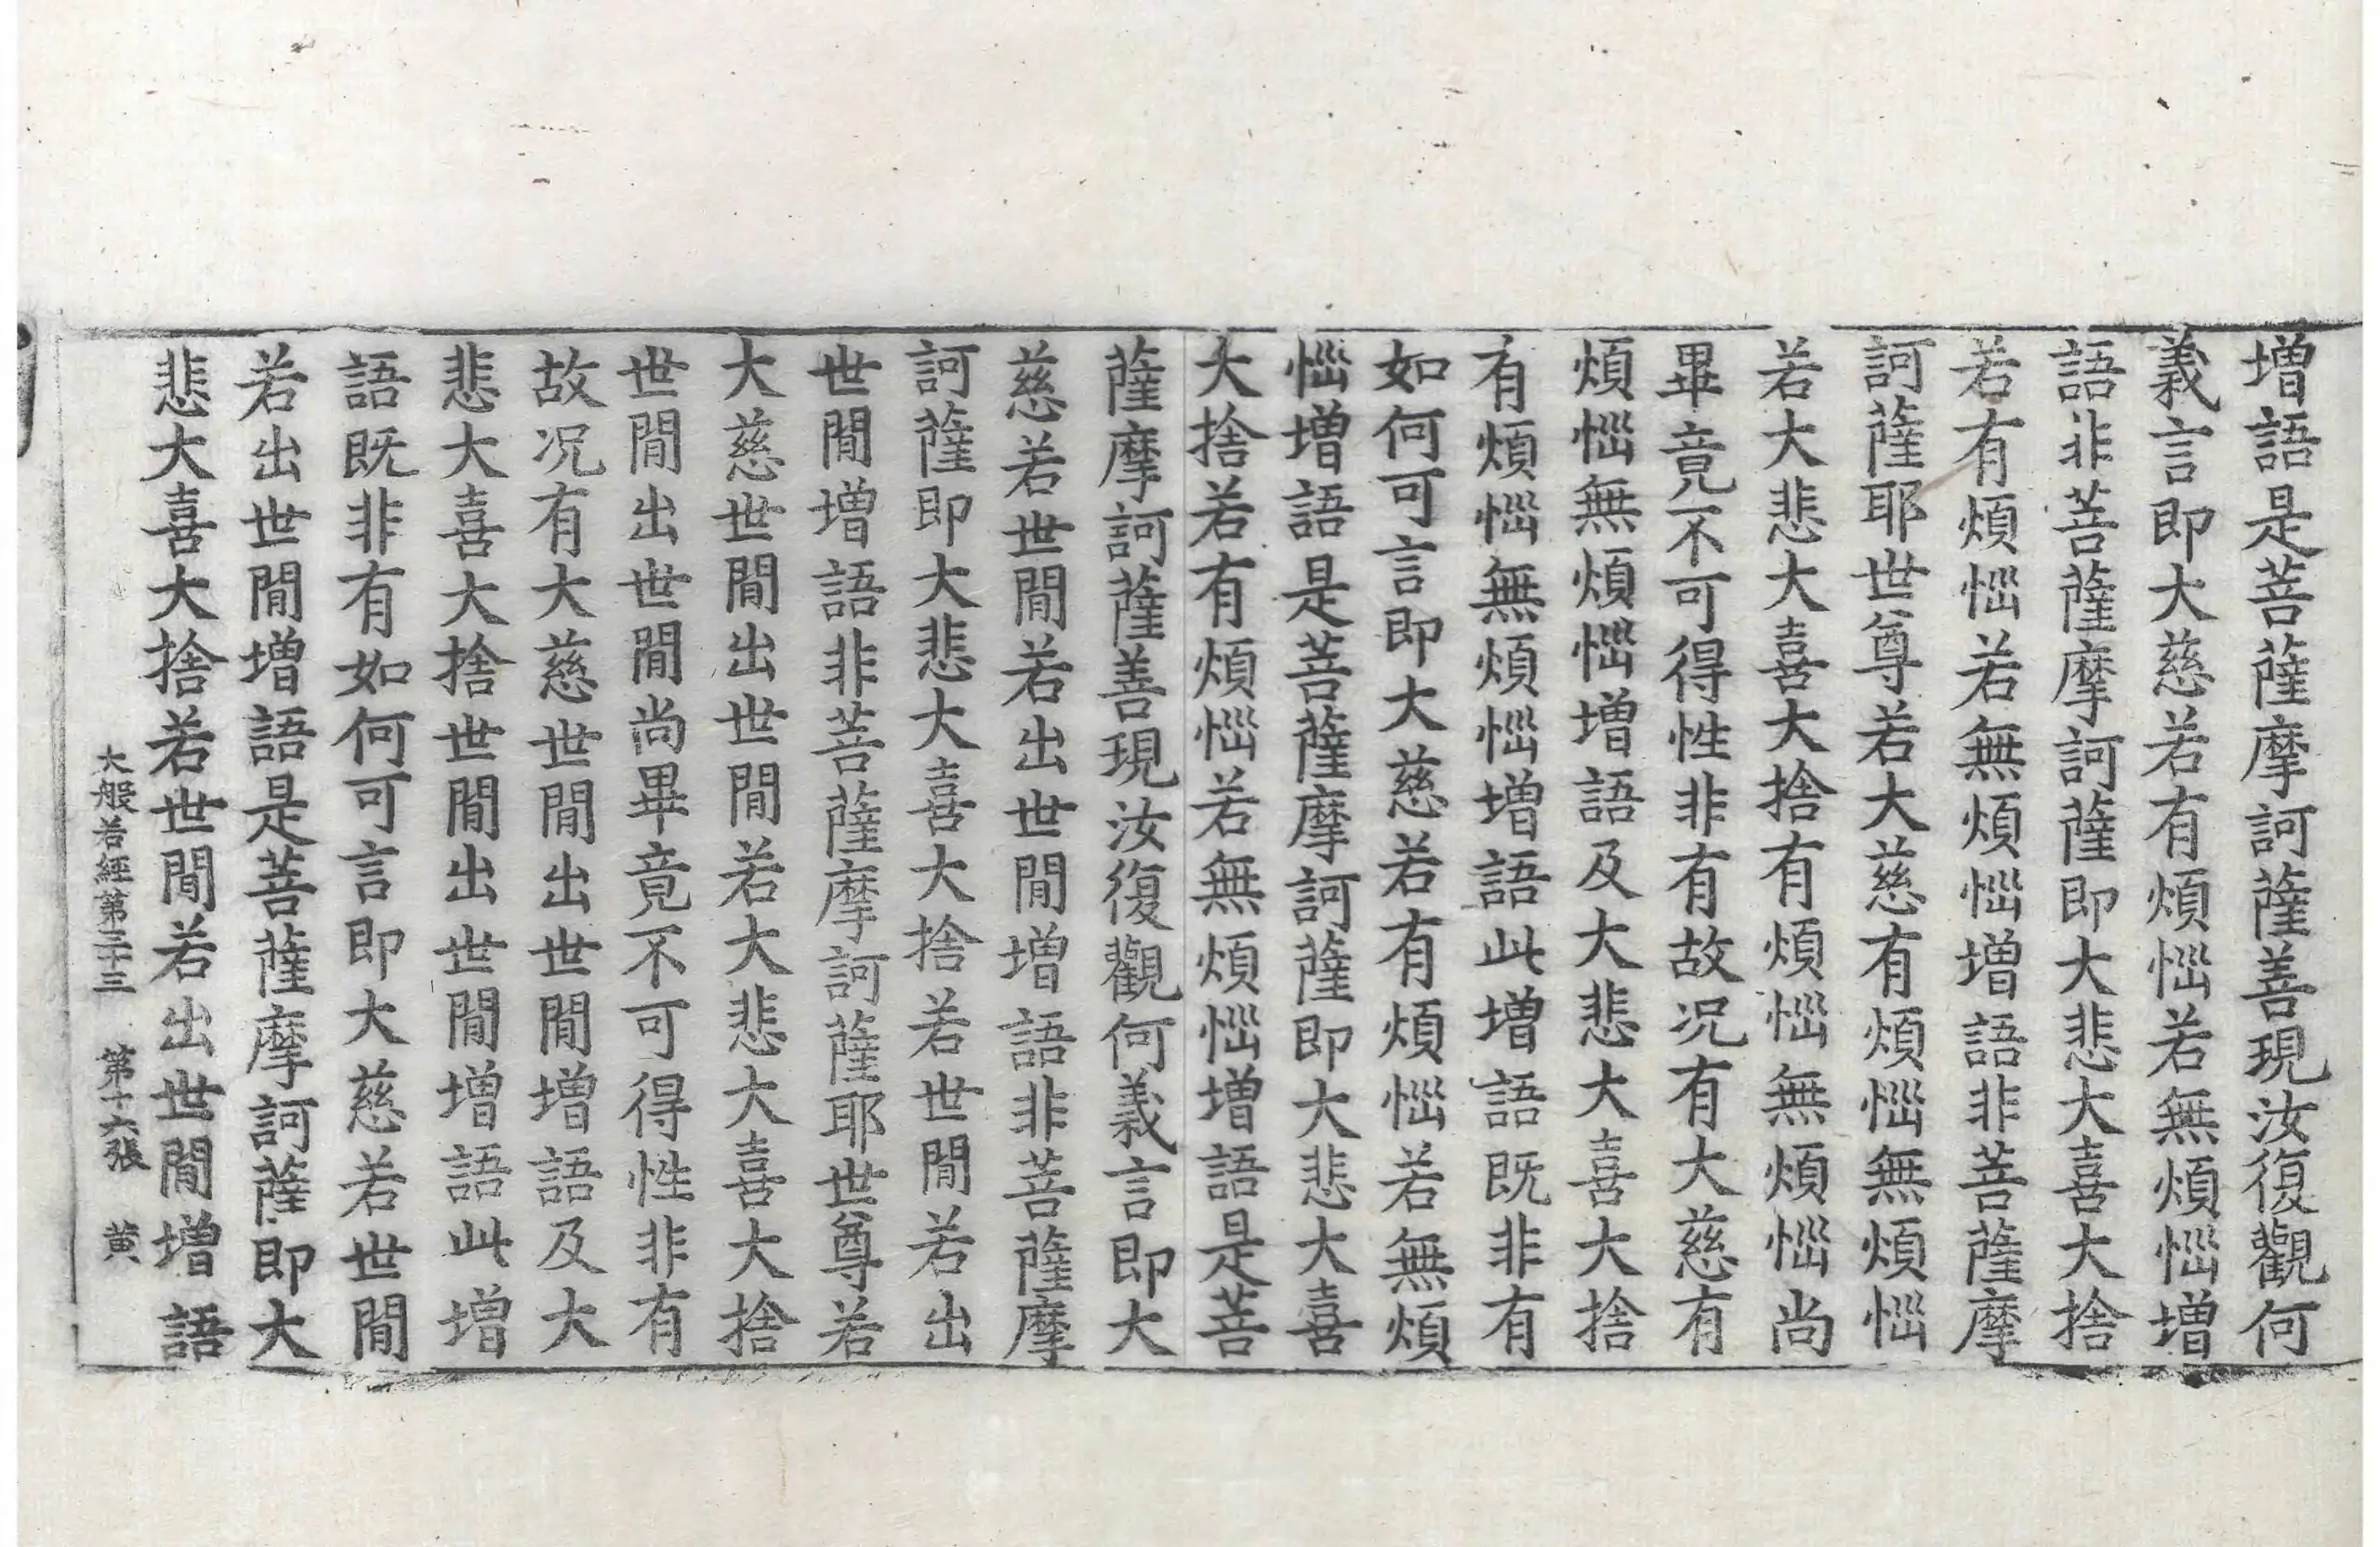 增語是菩薩摩訶薩善現汝復觀何
義言即大慈若有煩惱若無煩惱增
語非菩薩摩訶薩即大悲大喜大捨
若有煩惱若無煩惱增語非菩薩摩
訶薩耶世尊若大慈有煩惱無煩惱
若大悲大喜大捨有煩惱無煩惱尚
畢竟不可得性非有故況有大慈有
煩惱無煩惱增語及大悲大喜大捨
有煩惱無煩惱增語此增語既非有
如何可言即大慈若有煩惱若無煩
惱增語是菩薩摩訶薩即大悲大喜
大捨若有煩惱若無煩惱增語是菩
薩摩訶薩善現汝復觀何義言即大
慈若世間若出世間增語非菩薩摩
訶薩即大悲大喜大捨若世間若出
世間增語非菩薩摩訶薩耶世尊若
大慈世間出世間若大悲大喜大捨
世間出世間尚畢竟不可得性非有
故況有大慈世間出世間增語及大
悲大喜大捨世間出世間增語此增
語既非有如何可言即大慈若世間
若出世間增語是菩薩摩訶薩即大
悲大喜大捨若世間若出世間增語
大般若經第三十三 第十六張 黃